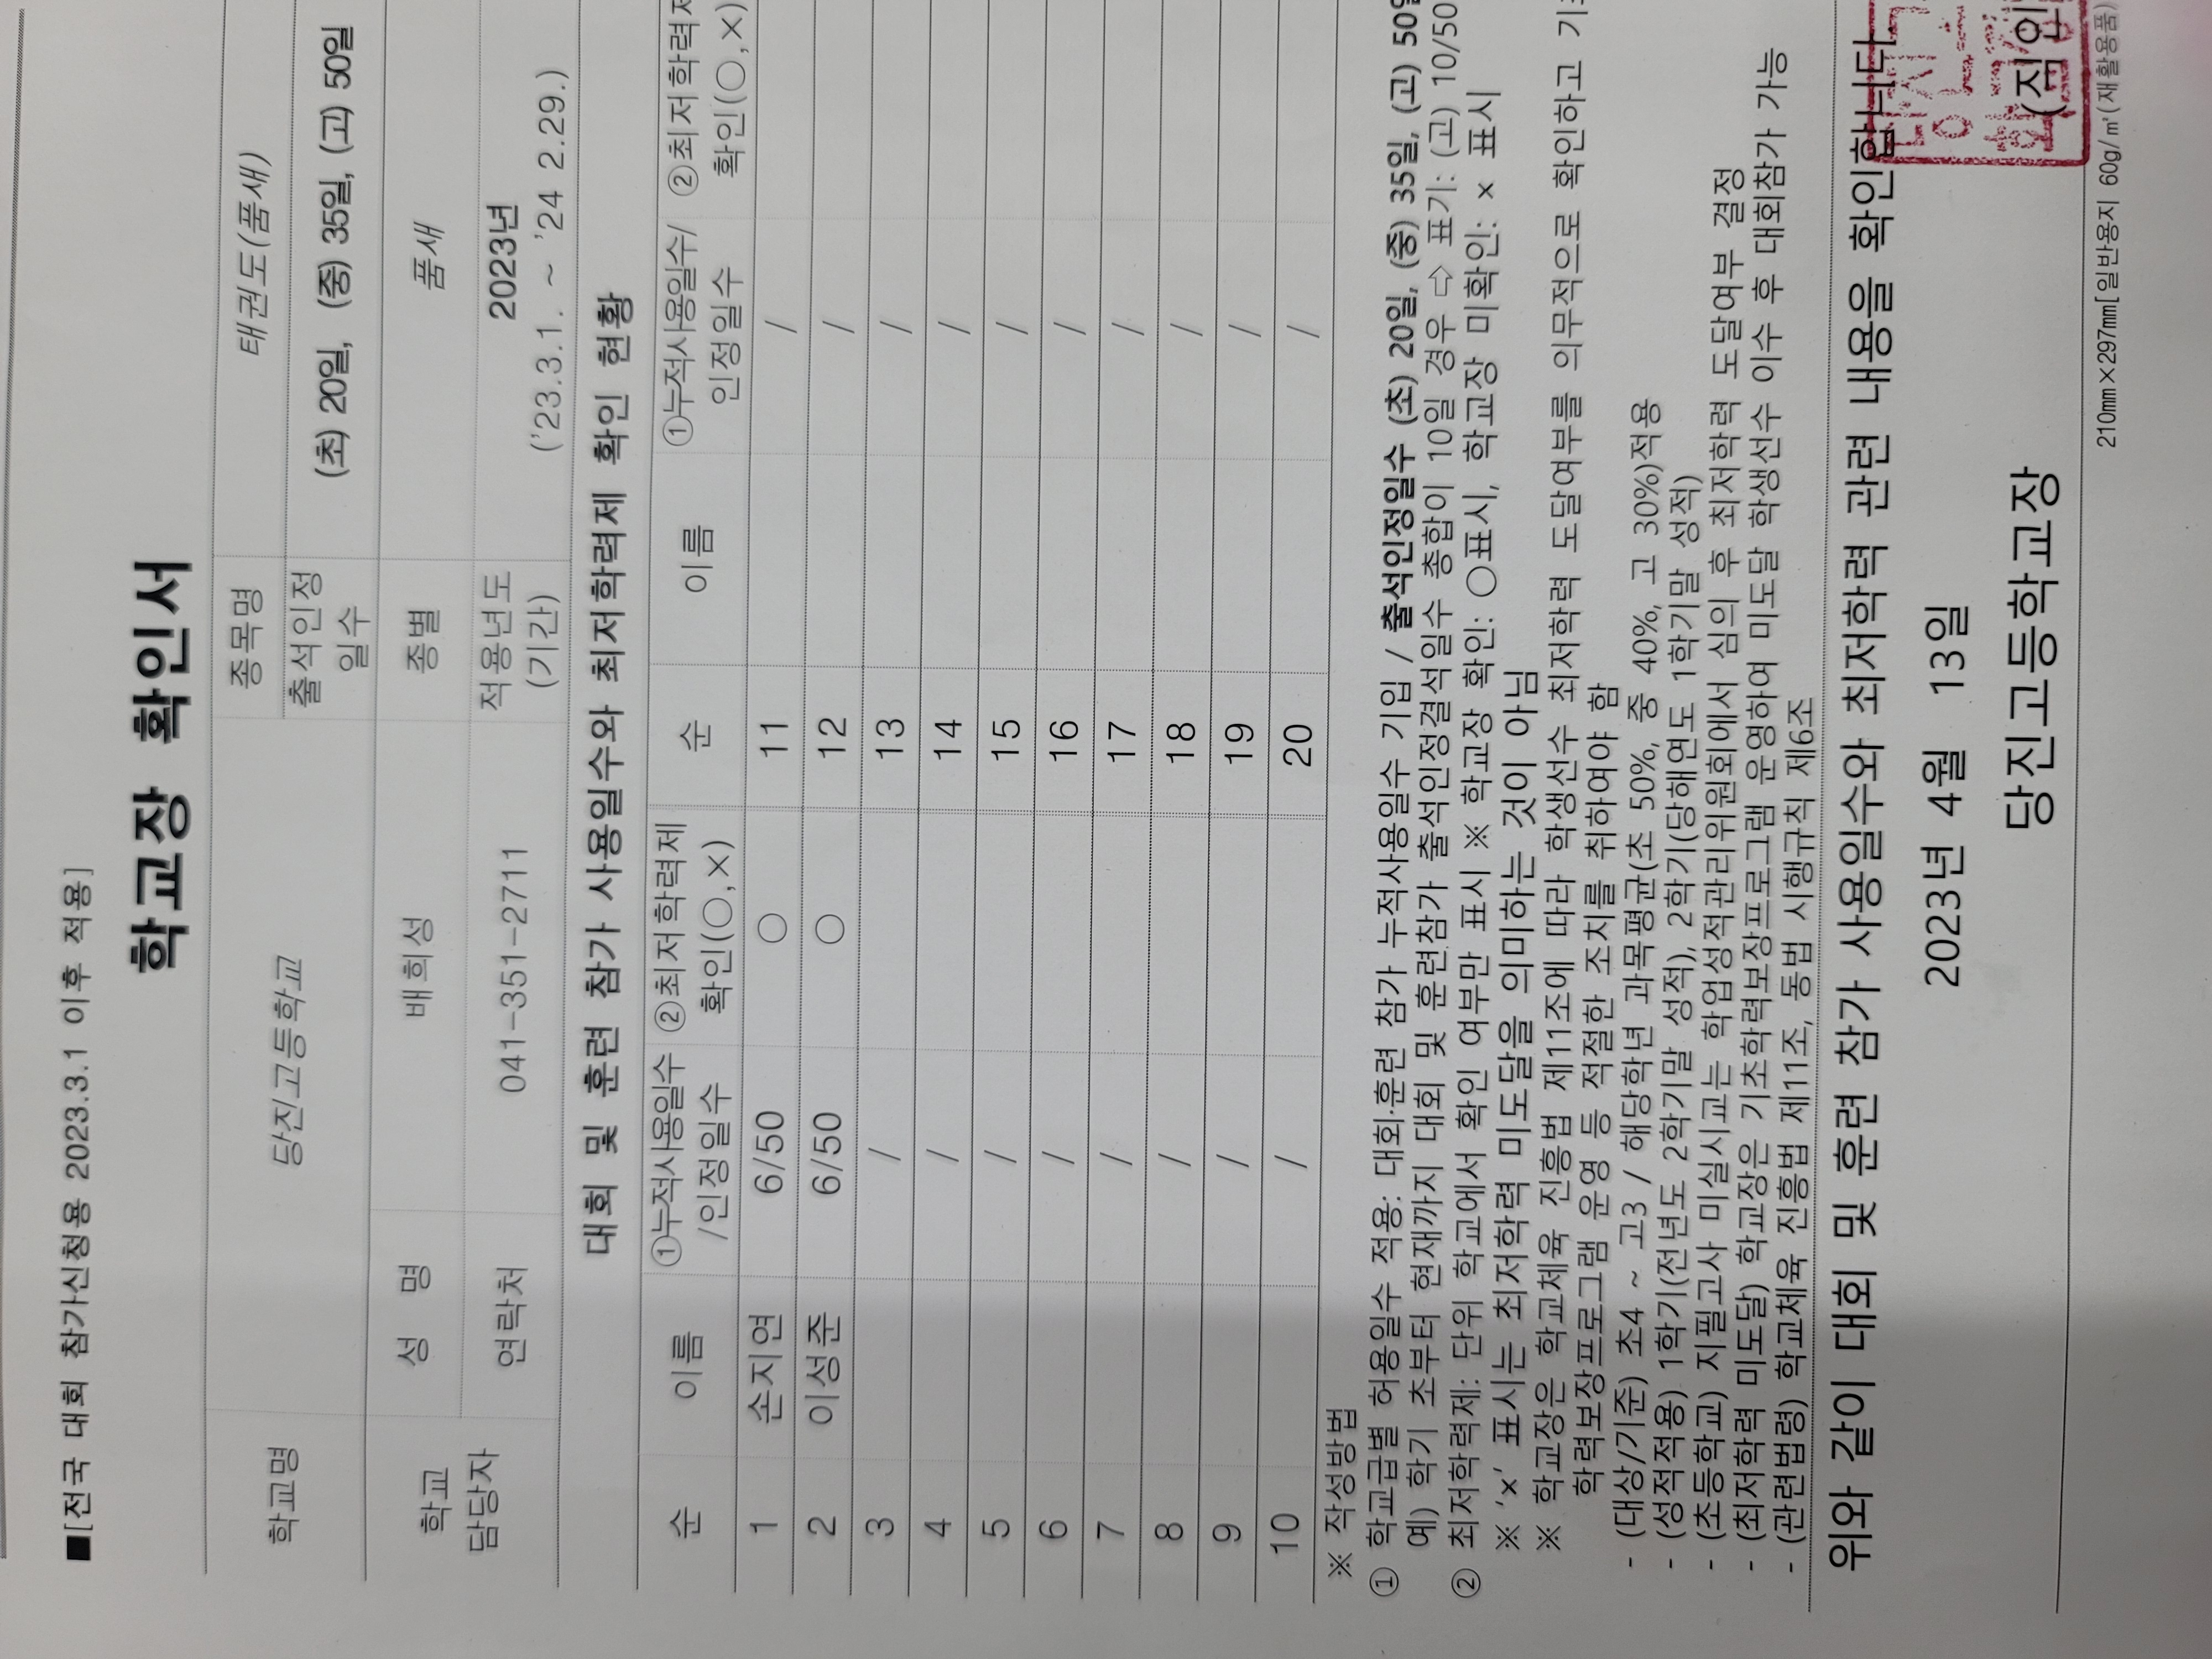 ■[전국 대회 참가신청용 2023.3.1 이후 적용]
학교장 확인서
학교명 당진고등학교 종목명 태권도(품새)
출석인정일수 (초) 20일, (중) 35일, (고) 50일
학교담당자 성 명 배희성 종별 품새
연락처 041-351-2711 적용년도(기간) 2023년
('23.3.1. ~ '24 2.29.)
대회 및 훈련 참가 사용일수와 최저학력제 확인 현황
순 이름 ①누적사용일수/인정일수 ②최저학력제 확인(○,×) 순 이름 ①누적사용일수/인정일수 ②최저학력제 확인(○,×)
1 손지연 6/50 ○ 11 /
2 이성준 6/50 ○ 12 /
3 / 13 /
4 / 14 /
5 / 15 /
6 / 16 /
7 / 17 /
8 / 18 /
9 / 19 /
10 / 20 /
※ 작성방법
① 학교급별 허용일수 적용: 대회·훈련 참가 누적사용일수 기입 / 출석인정일수 (초) 20일, (중) 35일, (고) 50일
예) 학기 초부터 현재까지 대회 및 훈련참가 출석인정결석일수 총합이 10일 경우 ⇨ 표기: (고) 10/50
② 최저학력제: 단위 학교에서 확인 여부만 표시 ※ 학교장 확인: ○표시, 학교장 미확인: × 표시
※ '×' 표시는 최저학력 미도달을 의미하는 것이 아님
※ 학교장은 학교체육 진흥법 제11조에 따라 학생선수 최저학력 도달여부를 의무적으로 확인하고 기초
학력보장프로그램 운영 등 적절한 조치를 취하여야 함
- (대상/기준) 초4 ~ 고3 / 해당학년 과목평균(초 50%, 중 40%, 고 30%)적용
- (성적적용) 1학기(전년도 2학기말 성적), 2학기(당해연도 1학기말 성적)
- (초등학교) 지필고사 미실시교는 학업성적관리위원회에서 심의 후 최저학력 도달여부 결정
- (최저학력 미도달) 학교장은 기초학력보장프로그램 운영하여 미도달 학생선수 이수 후 대회참가 가능
- (관련법령) 학교체육 진흥법 제11조, 동법 시행규칙 제6조
위와 같이 대회 및 훈련 참가 사용일수와 최저학력 관련 내용을 확인합니다.
2023년 4월 13일
당진고등학교장 (직인
210mm×297mm[일반용지 60g/㎡(재활용품)